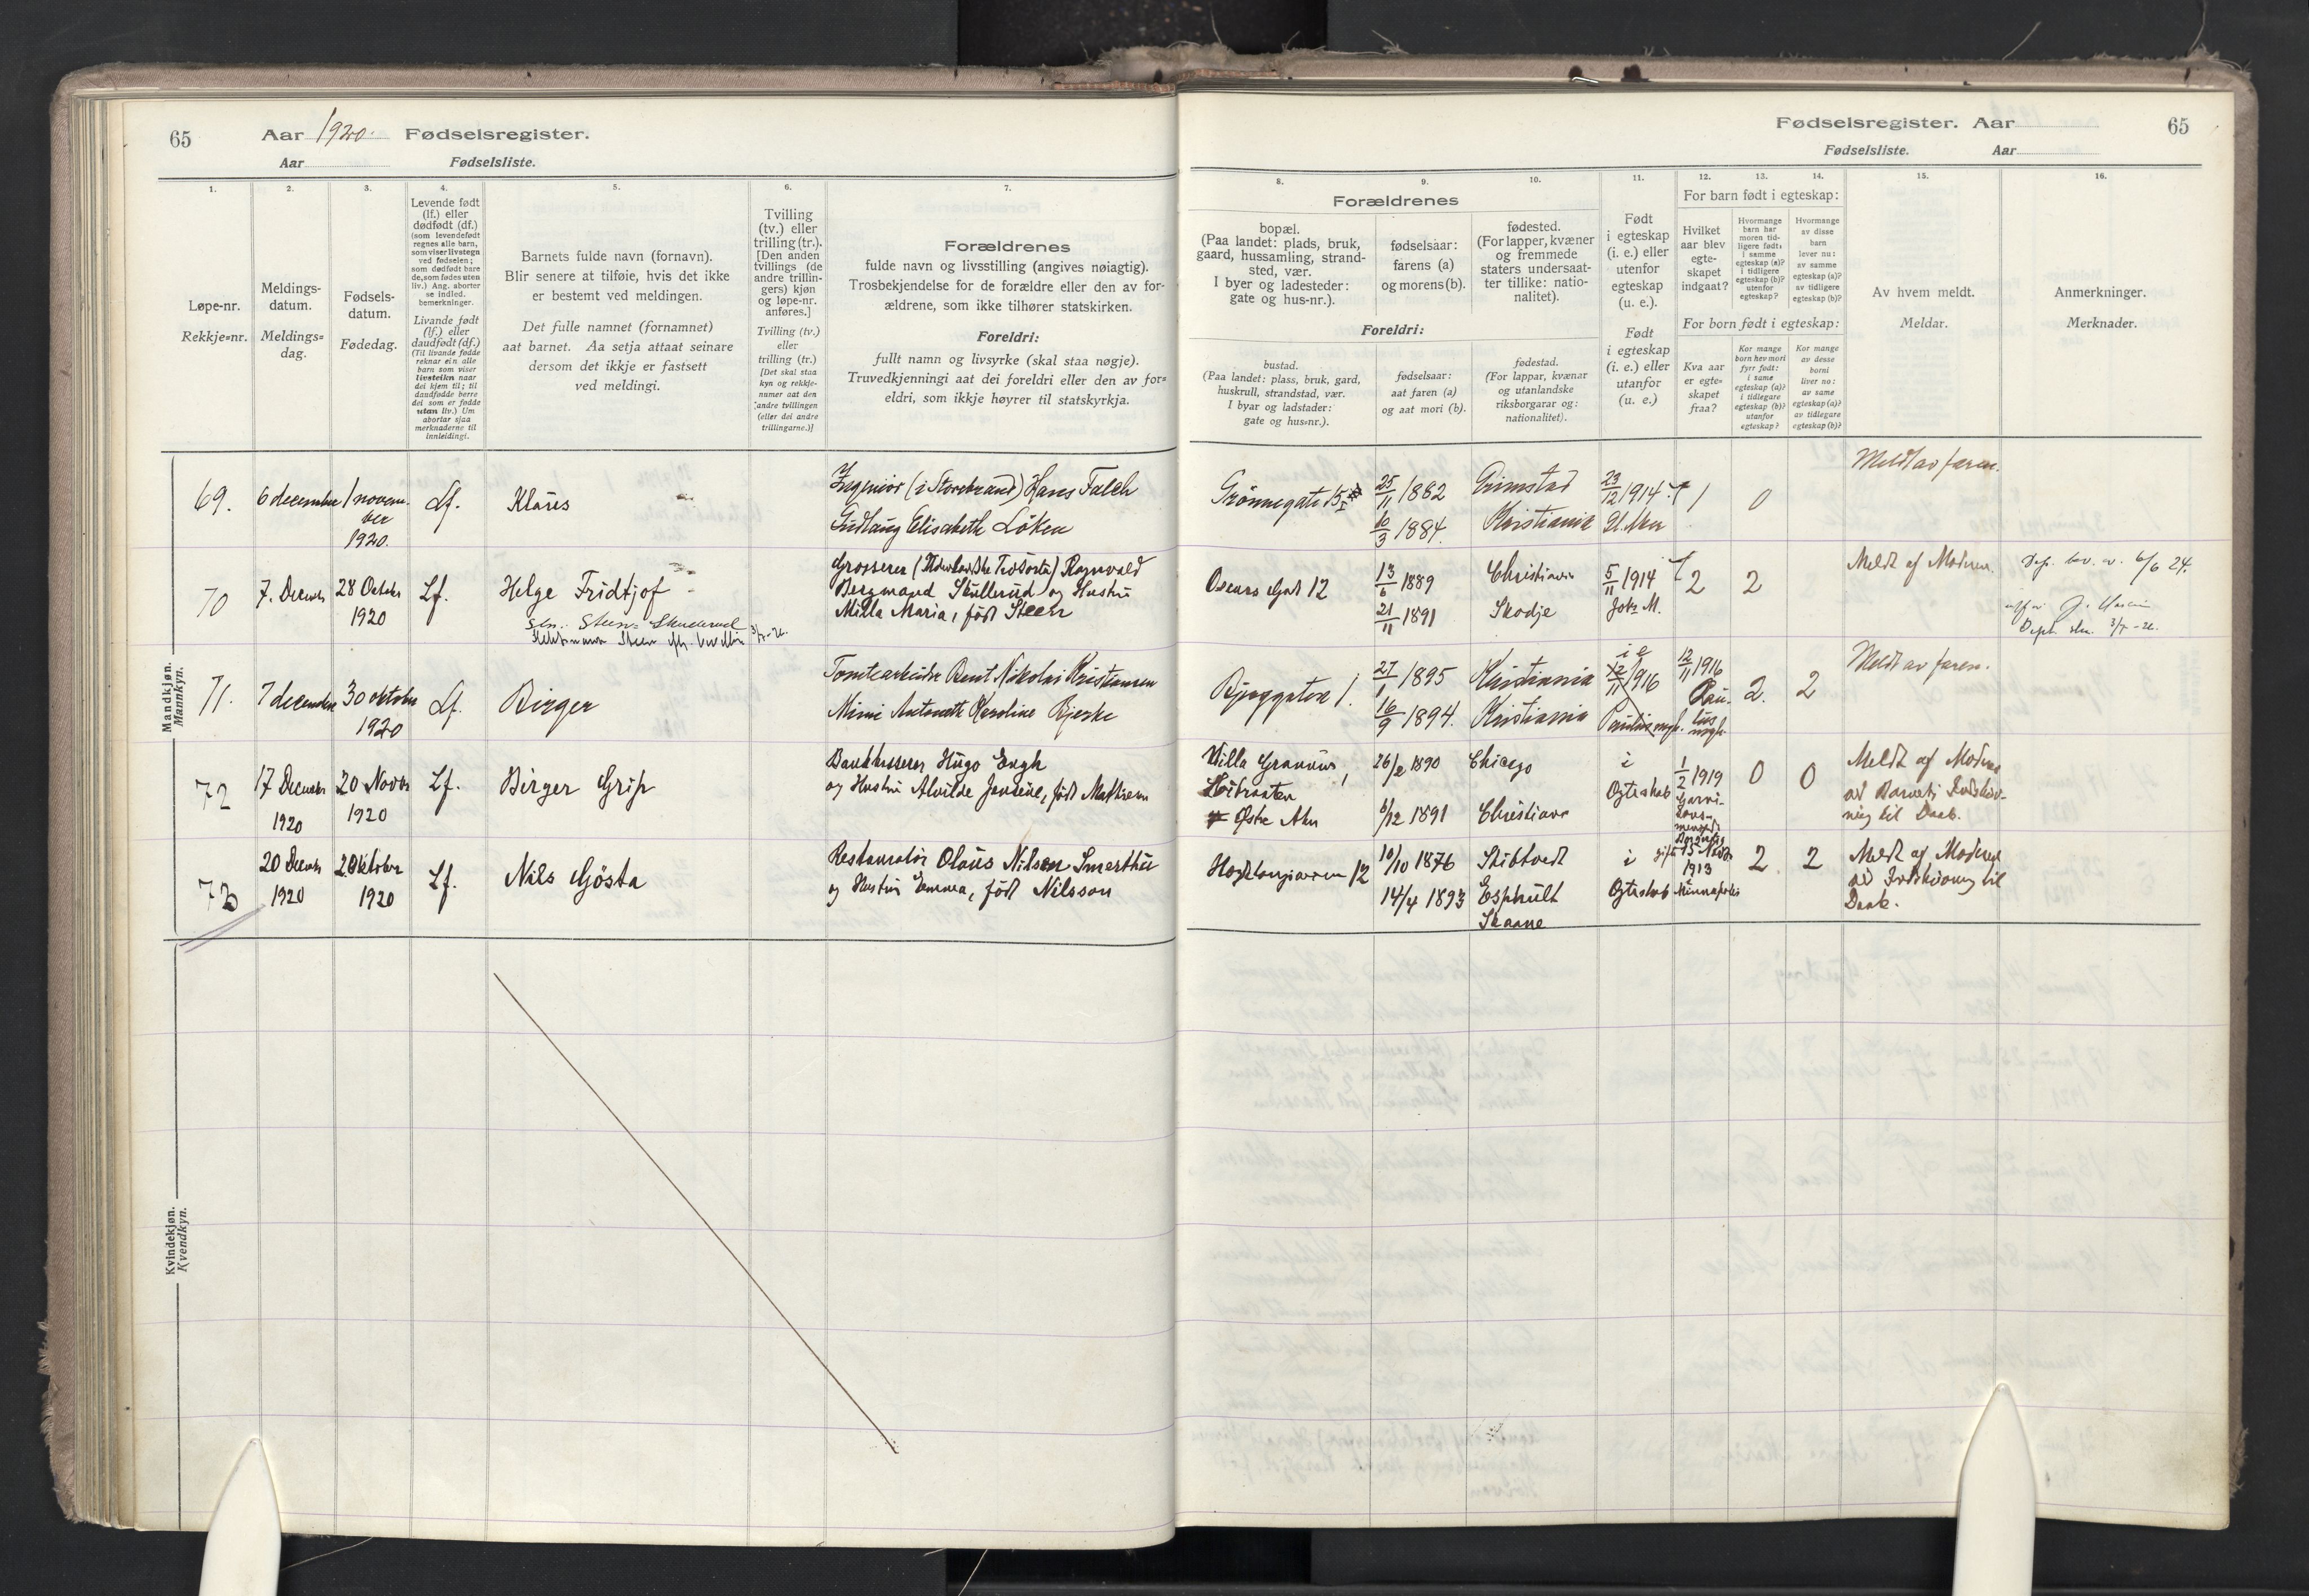 65
Aar 1920. Fødselsregister.
Aar Fødselsliste.
1. 2. 3. 4. 5. 6. 7.
Løpe-nr.
Rekkje=nr.
Meldings-
datum.
Meldings=
dag.
Fødsels-
datum.
Fødedag.
Levende født
(lf.) eller
dødfødt (df.)
(som levendefødt
regnes alle barn,
som viser livstegn
ved fødselen;
som dødfødt bare
de, som fødes uten
liv.) Ang. aborter
se indled.
bemerkninger.
Livande født
(lf.) eller
daudfødt (df.)
(Til livande fødde
reknar ein alle
barn som viser
livsteikn naar
dei kjem til; til
daudfødde berre
dei som er fødde
utan liv.) Um
abortar sjaa
merknaderne til
innleidingi.
Barnets fulde navn (fornavn).
Blir senere at tilføie, hvis det ikke
er bestemt ved meldingen.
Det fulle namnet (fornamnet)
aat barnet. Aa setja attaat seinare
dersom det ikkje er fastsett
ved meldingi.
Tvilling
(tv.) eller
trilling (tr.).
[Den anden
tvillings (de
andre trillin-
gers) kjøn
og løpe-nr.
anføres.]
Tvilling (tv.)
eller
trilling (tr.)
[Det skal staa
kyn og rekkje-
numer aat den
andre tvillingen
(eller dei andre
trillingarne.)]
Forældrenes
fulde navn og livsstilling (angives nøiagtig).
Trosbekjendelse for de forældre eller den av for-
ældrene, som ikke tilhører statskirken.
Foreldri:
fullt namn og livsyrke (skal staa nøgje).
Truvedkjenningi aat dei foreldri eller den av for=
eldri, som ikkje høyrer til statskyrkja.
Mandkjøn.
Mannkyn.
69. 6 december 1 novem-
ber
1920. Lf. Klaus
Ingeniør (i Storebrand) Hans Falch
Gudlaug Elisabeth Löken
70 7. Decemb 28 October
1920 Lf. Helge Fridtjof
Grosserer
Bergmand Skullerud og Hustru
Milla Maria, født Steen
71. 7 december 30 oktober
1920 Lf. Birger
Tomtearbeider Bent Nikolai Kristiansen
Mimi Antonette Karoline Bjerke
72 17 Decemb
1920 20 Novbr
1920 Lf. Birger Grip
Bankkasserer Hugo Engh
og Hustru Alvilde Jensine, født Mathisen
73 20 Decemb
1920 2 Oktober
1920 Lf. Nils Gösta
Restauratör Olaus Nilsen Smerthu
og Hustru Emma, født Nilsson
Kvindekjøn.
Kvendkyn.
Fødselsregister. Aar 65
Fødselsliste. Aar
8. 9. 10. 11. 12. 13. 14. 15. 16.
Forældrenes
bopæl.
(Paa landet: plads, bruk,
gaard, hussamling, strand-
sted, vær.
I byer og ladesteder:
gate og hus-nr.).
fødselsaar:
farens (a)
og morens (b).
fødested.
(For lapper, kvæner
og fremmede
staters undersaat-
ter tillike: natio-
nalitet).
Foreldri:
bustad.
(Paa landet: plass, bruk, gard,
huskrull, strandstad, vær.
I byar og ladstader:
gate og hus=nr.).
fødselsaar:
aat faren (a)
og aat mori (b).
fødestad.
(For lappar, kvænar
og utanlandske
riksborgarar og:
nationalitet).
Født
i egteskap
(i. e.) eller
utenfor
egteskap
(u. e.).
Født
i egteskap
(i. e.) eller
utanfor
egteskap
(u. e.)
For barn født i egteskap:
Hvilket
aar blev
egte-
skapet
indgaat?
Hvormange
barn har
moren tid-
ligere født:
i samme
egteskap (a)?
i tidligere
egteskap (b)?
utenfor
egteskap?
Hvormange
av disse
barn
lever nu:
av samme
egteskap (a)?
av tidligere
egteskap (b)?
For born født i egteskap:
Kva aar
er egte-
skapet
fraa?
Kor mange
born hev mori
fyrr født:
i same
egteskap (a)?
i tidlegare
egteskap (b)?
utanfor
egteskap?
Kor mange
av desse
borni
liver no:
av same
egteskap (a)?
av tidlegare
egteskap (b)?
Av hvem meldt.
Meldar.
Anmerkninger.
Merknader.
Grønnegate 15 25/11 1882 Grimstad 23/12 1914 1 0 Meldt av faren.
10/3 1884. Kristiania
Oscars Gad 12 13/6 1889 Christiania 5/11 1914 2 2 Meldt af Moderen. 6/6 24.
21/11 1891 Skodje Joh. M.
Bjerggaten 1. 27/1 1895 Kristiania i e 12/11 1916 12/11 1916 2. 2 Meldt av faren.
16/9 1894. Kristiania Paulus
Villa Granun 26/2 1890 Chicago i
Egteskab 1/2 1919 0 0 Meldt af Moderen
Høibraaten
Østre Aker 6/12 1891 Christiania
ved Barnets Indskriv-
ning til Daab.
12 10/10 1876 Skibtvedt i
Egteskab gift 15 1913 Minneapolis 2 2 Meldt af Moderen
14/4 1893 Esphult
Skaane
ved Indskrivning til
Daab.